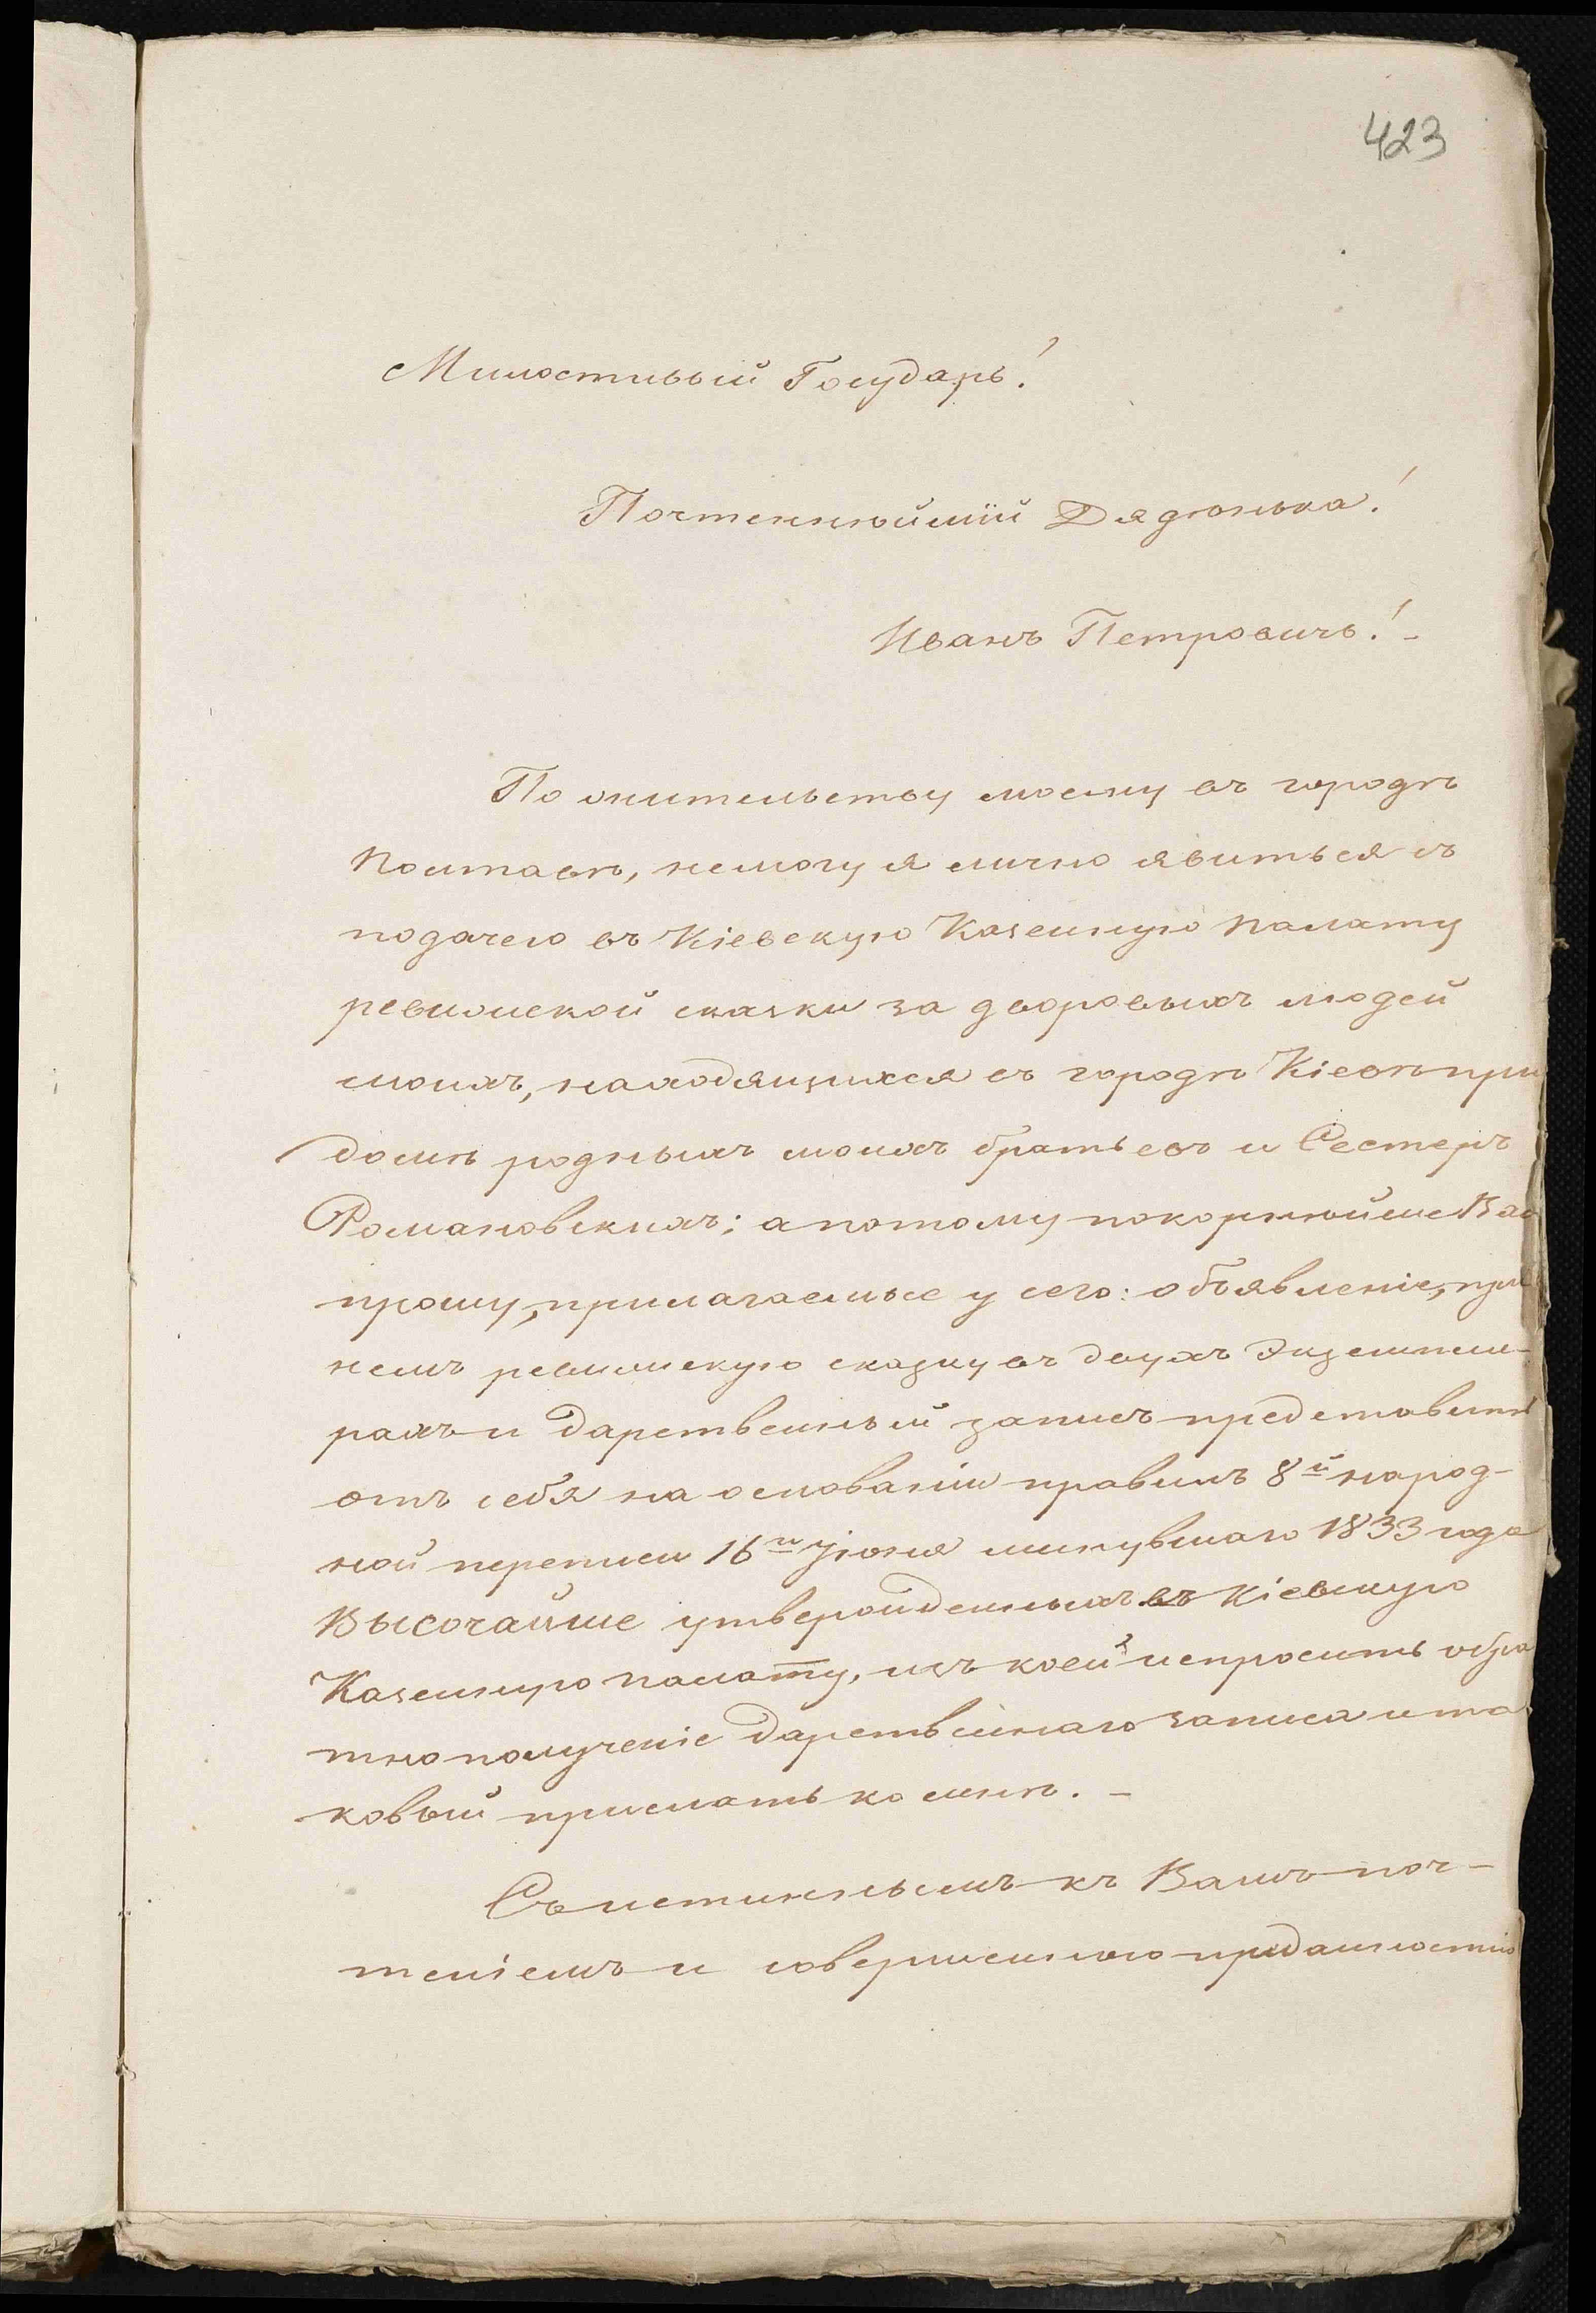 423
Милостивый Государь!
Почтеннѣйшій Дядюнька!
Иванъ Петровичь! -
По жительству моему въ городѣ
Полтавѣ, немогу я лично явиться съ
подачею въ Кіевскую Казенную Палату
ревизской сказки за дворовыхъ людей
моихъ, находящихся въ городѣ Кіевѣ при
домѣ родныхъ моихъ братьевъ и Сестеръ
Романовскихъ; а потому покорнѣйше Вас
прошу, прилагаемые у сего: объявленіе, при
немъ ревизскую сказку въ двухъ Экземпля-
рахъ и дарственный записъ представить
отъ себя на основаніи правилъ 8й народ-
ной переписи 16го Іюня минувшаго 1833 года
Высочайше утвержденныхъ въ Кіевскую
Казенную Палату, изъ коей испросить обра
тно полученіе дарственнаго записа и та
ковый прислать ко мнѣ. -
Съ истиннымъ къ Вамъ поч-
теніемъ и совершенною преданностію